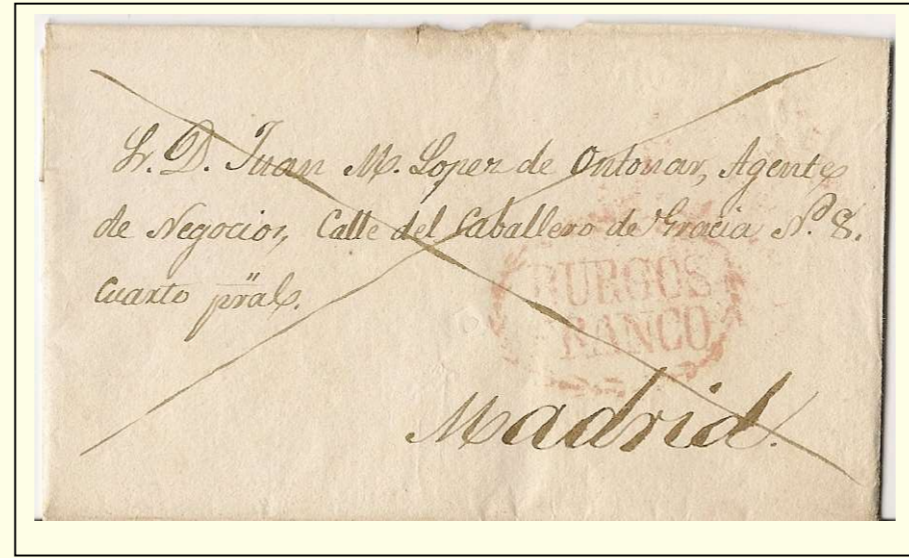 Sr. D. Juan M. Lopez de Ontonar, Agente
de Negocios, Calle del Caballero de Gracia Nº. 8.
Cuarto präl.
BURGOS
FRANCO
Madrid.